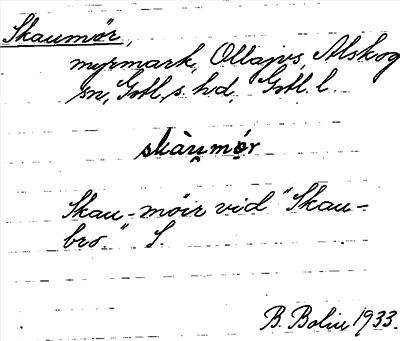 Skaumör,
myrmark, Ollajvs, Alskog
sn, Gotl. s. hd, Gotl. l.
skàu̯mør
Skau-möir vid "Skau-
bro" S.
B. Bolin 1933.